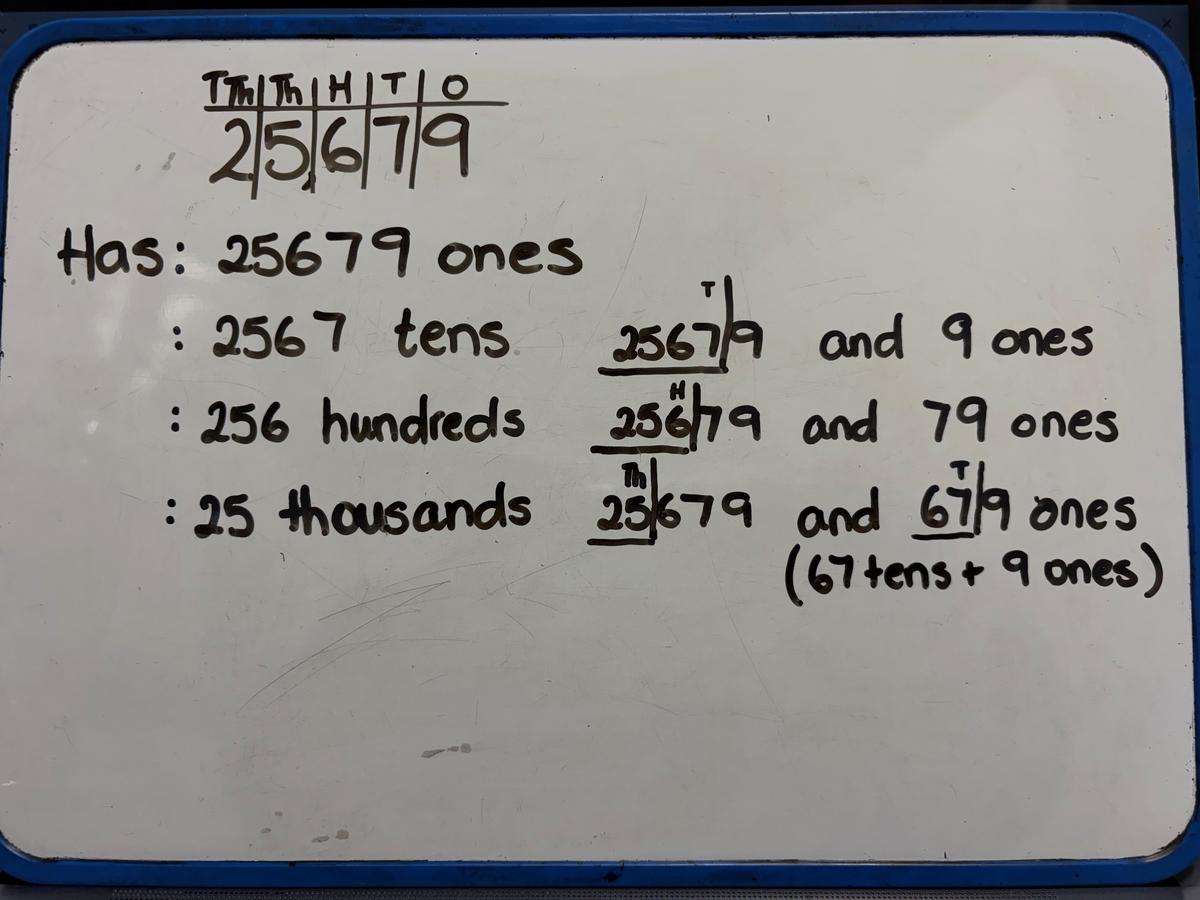 TTh Th H T O
2 5, 6 7 9
Has: 25679 ones
T
: 2567 tens 2567|9 and 9 ones
H
: 256 hundreds 256|79 and 79 ones
Th T
: 25 thousands 25|679 and 67|9 ones
(67 tens + 9 ones)